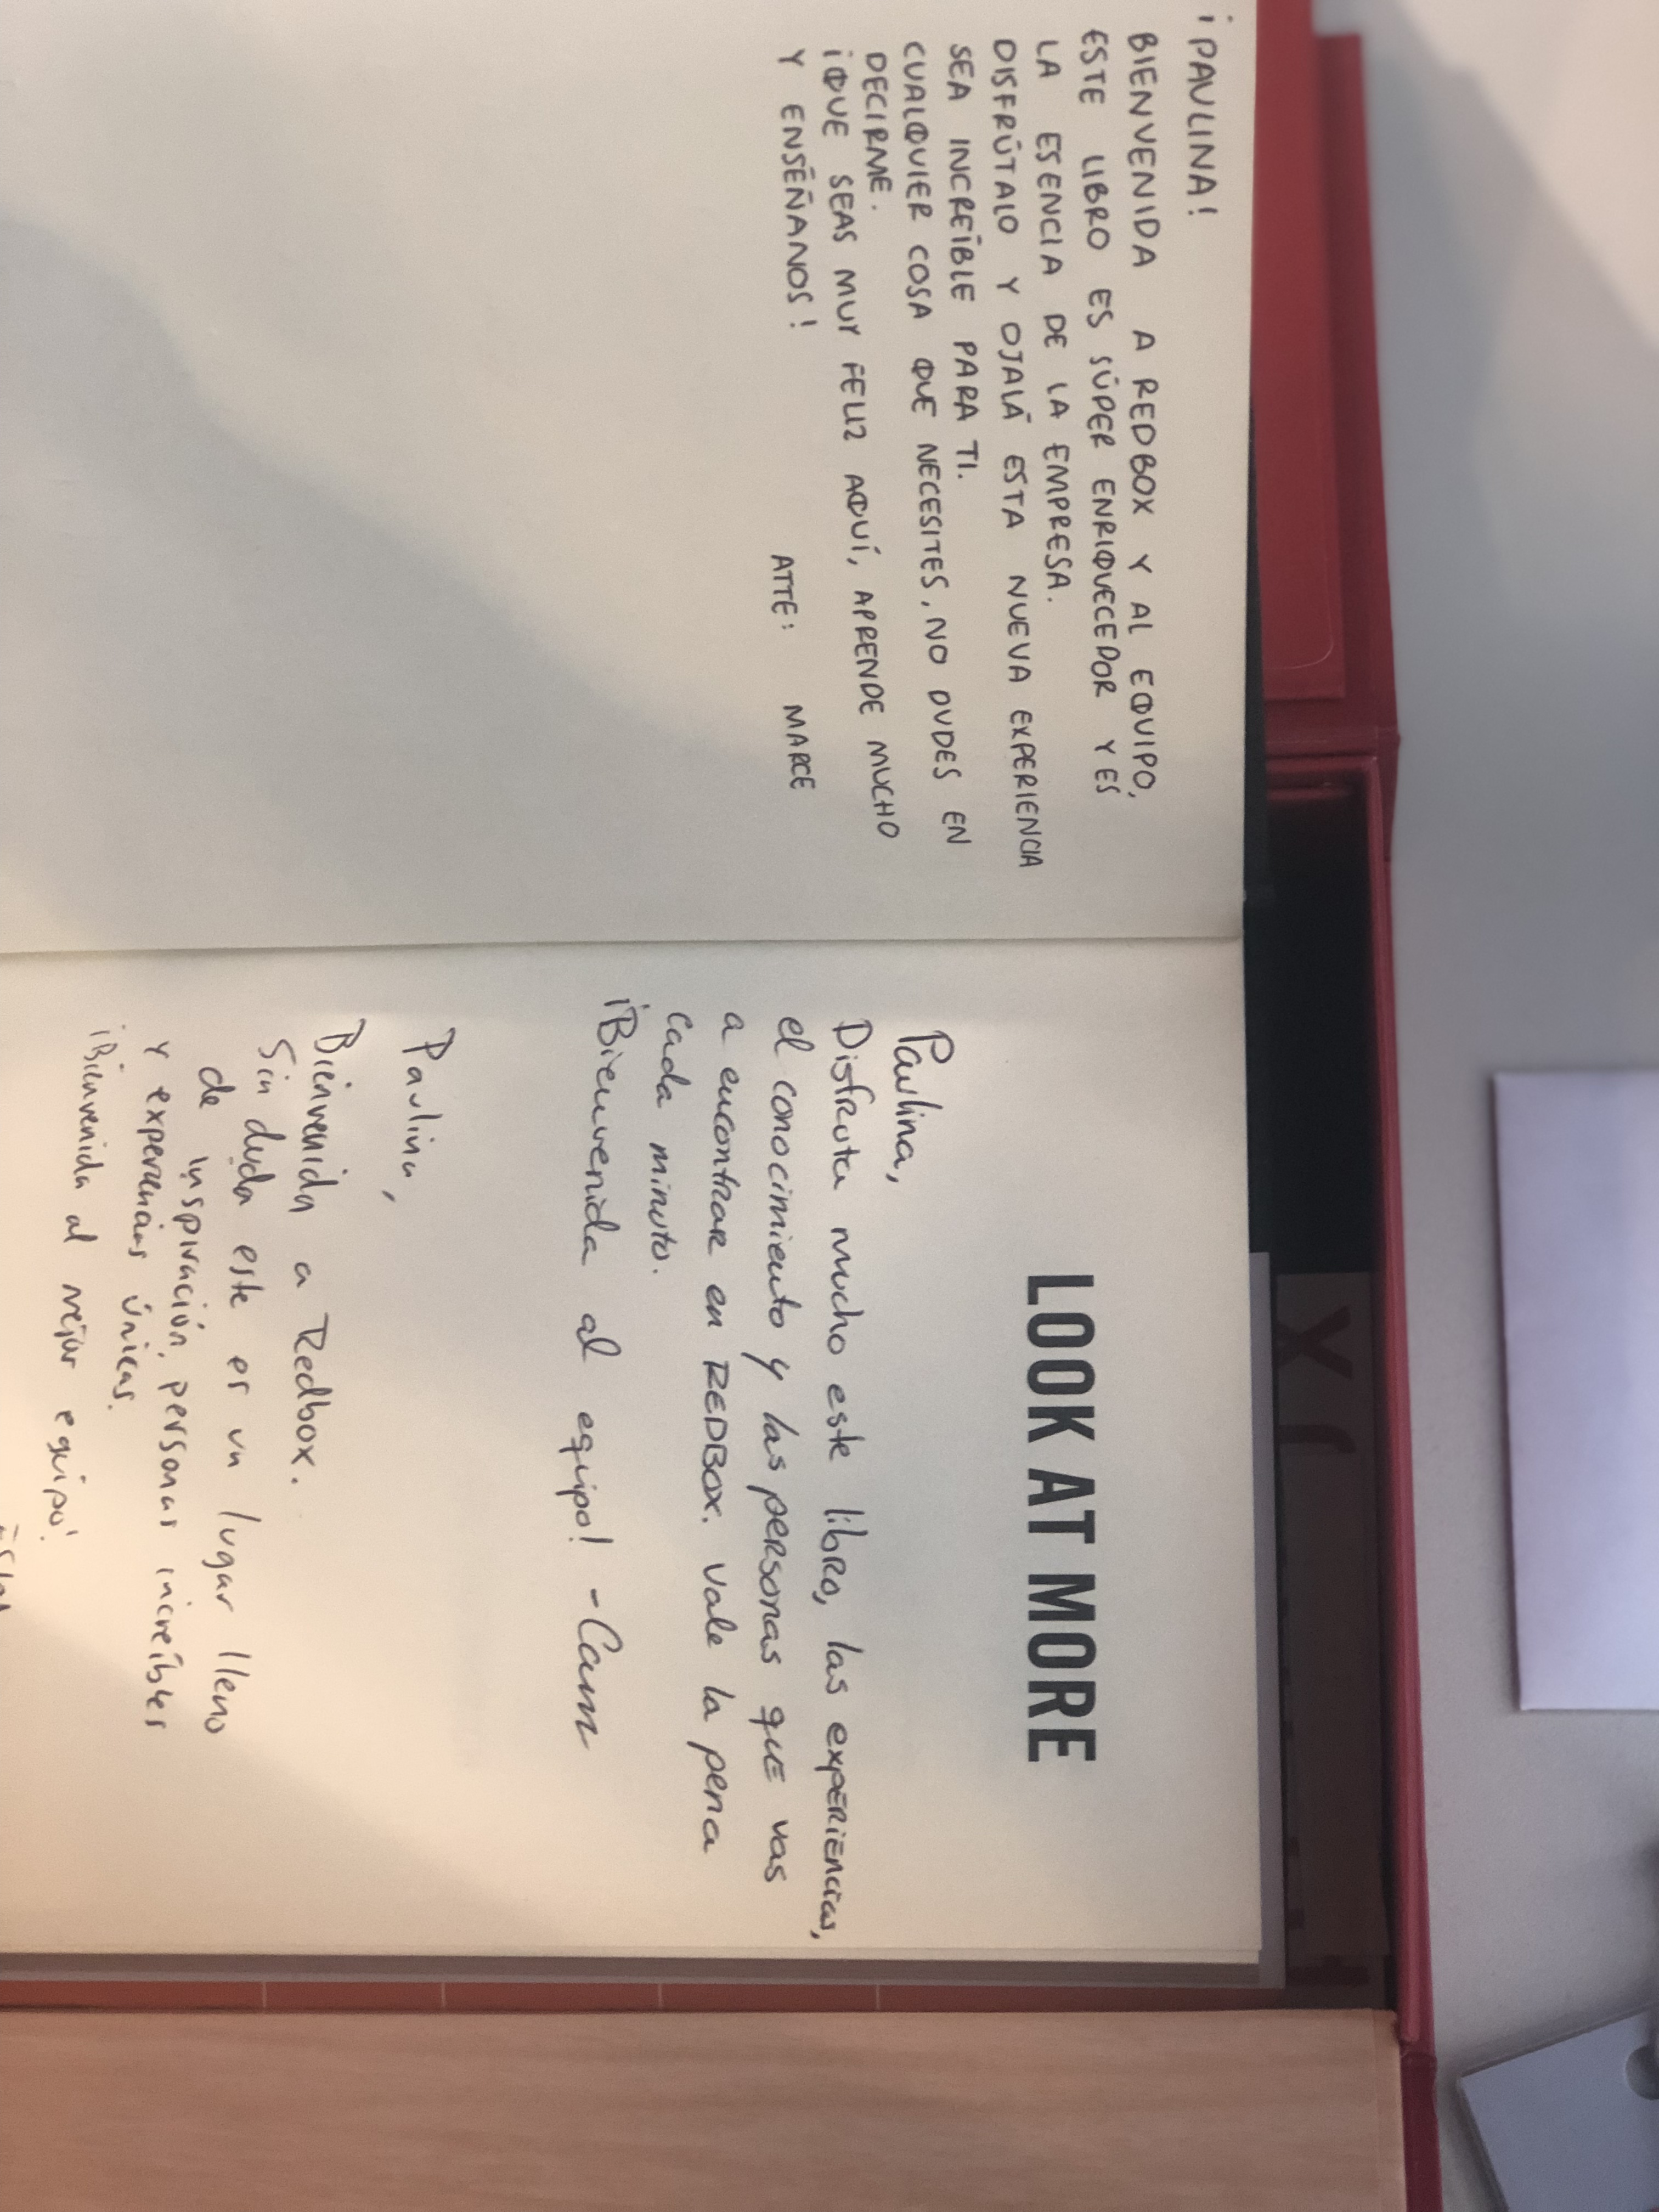 ¡PAULINA!
BIENVENIDA A REDBOX Y AL EQUIPO,
ESTE LIBRO ES SÚPER ENRIQUECEDOR Y ES
LA ESENCIA DE LA EMPRESA.
DISFRÚTALO Y OJALÁ ESTA NUEVA EXPERIENCIA
SEA INCREÍBLE PARA TI.
CUALQUIER COSA QUE NECESITES, NO DUDES EN
DECIRME.
¡QUE SEAS MUY FELIZ AQUÍ, APRENDE MUCHO
Y ENSÉÑANOS!
ATTE: MARCE
LOOK AT MORE
Paulina,
Disfruta mucho este libro, las experiencias,
el conocimiento y las personas que vas
a encontrar en REDBOX. Vale la pena
cada minuto.
¡Bienvenida al equipo! -Cam
Paulina,
Bienvenida a Redbox.
Sin duda este es un lugar lleno
de inspiración, personas increíbles
y experiencias únicas.
¡Bienvenida al mejor equipo!